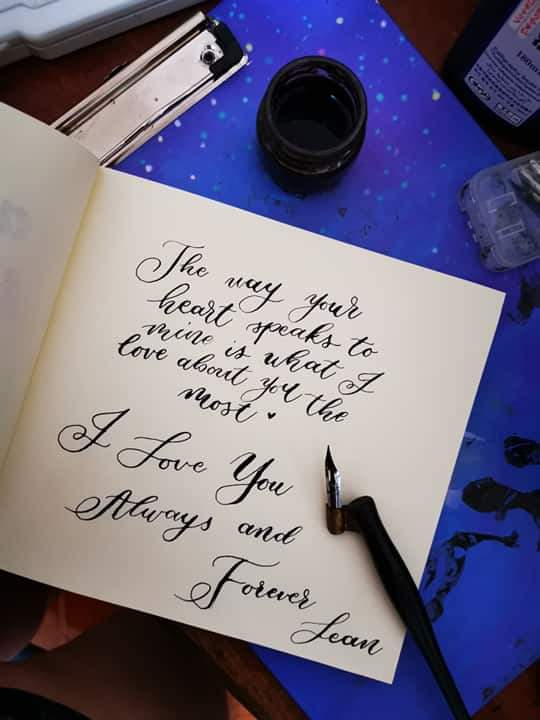 The way your
heart speaks to
mine is what I
love about you the
most ♥
I Love You
Always and
Forever
Lean